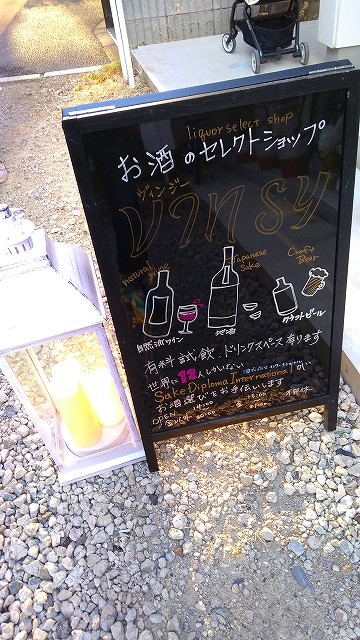 liquor select shop
お酒のセレクトショップ
ヴィンジー
vinsy
natural wine
Japanese Sake
Craft Bear
自然派ワイン
地酒
クラフトビール
有料試飲、ドリンクスペース有ります
世界に12人しかいない
Sake Diploma International が
お酒選びをお手伝いします
OPEN